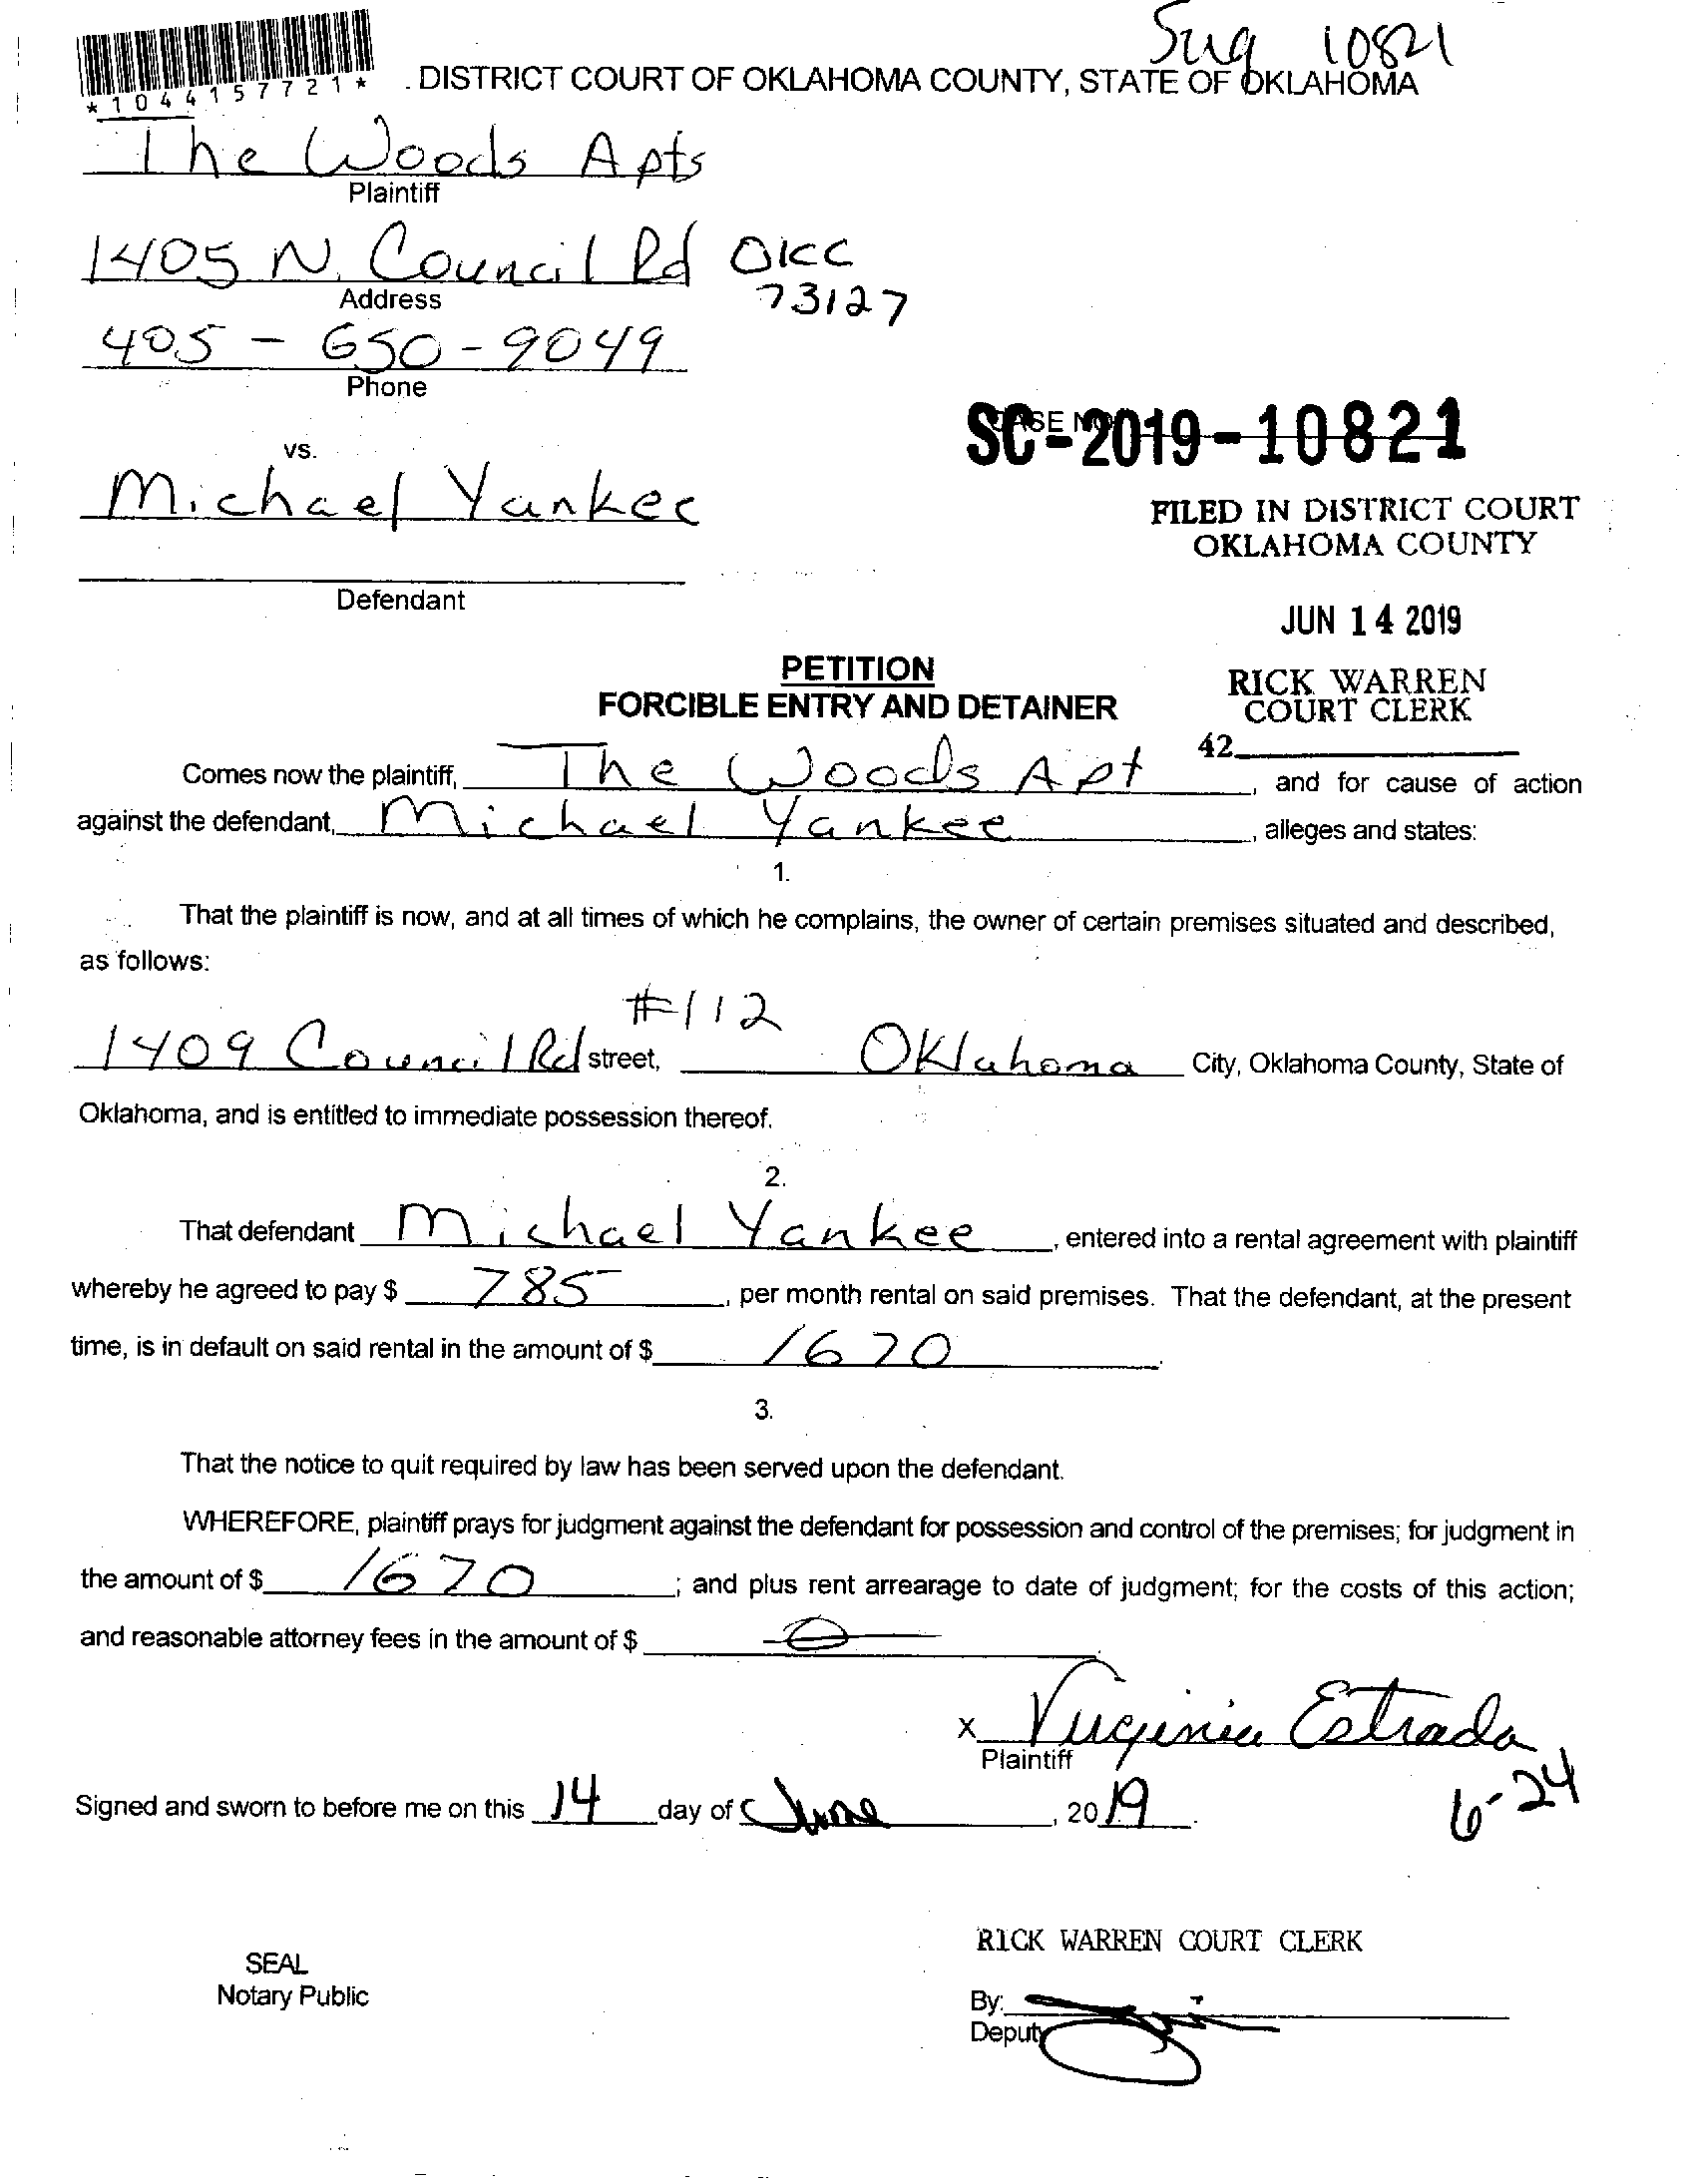 10821
*1044157721*
DISTRICT COURT OF OKLAHOMA COUNTY, STATE OF OKLAHOMA
The Woods Apts
Plaintiff
1405 N. Council Rd OKC
Address
73127
405 - 650 - 9049
Phone
SC-2019-10821
vs.
Michael Yankee
FILED IN DISTRICT COURT
OKLAHOMA COUNTY
Defendant
JUN 14 2019
PETITION
FORCIBLE ENTRY AND DETAINER
RICK WARREN
COURT CLERK
42
Comes now the plaintiff, The Woods Apt, and for cause of action
against the defendant, Michael Yankee, alleges and states:
1.
That the plaintiff is now, and at all times of which he complains, the owner of certain premises situated and described,
as follows:
#112
1409 Council Rd street, Oklahoma City, Oklahoma County, State of
Oklahoma, and is entitled to immediate possession thereof.
2.
That defendant Michael Yankee, entered into a rental agreement with plaintiff
whereby he agreed to pay $ 785, per month rental on said premises. That the defendant, at the present
time, is in default on said rental in the amount of $ 1670.
3.
That the notice to quit required by law has been served upon the defendant.
WHEREFORE, plaintiff prays for judgment against the defendant for possession and control of the premises; for judgment in
the amount of $ 1670; and plus rent arrearage to date of judgment; for the costs of this action;
and reasonable attorney fees in the amount of $ 0
X Virginia Estrada
Plaintiff
6-24
Signed and sworn to before me on this 14 day of June, 2019.
RICK WARREN COURT CLERK
SEAL
Notary Public
By:
Deputy